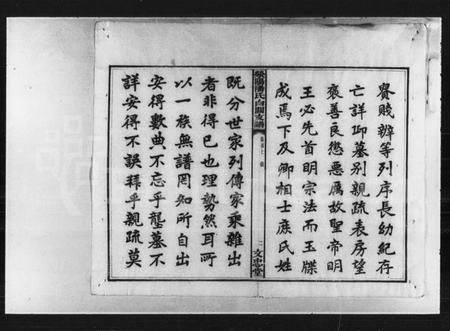 貴賤辦等列序長幼紀存
亡詳卭墓別親疏表房望
褒善良懲惡厲故聖帝明
王必先首明宗法而玉牒
成焉下及卿相士庶氏姓
滎陽潘氏白閣支譜
二 文忠堂
既分世家列傳家乘雜出
者非得已也理勢然耳所
以一族無譜罔知所自出
安得數典不忘乎壟墓不
詳安得不誤拜乎親疏莫